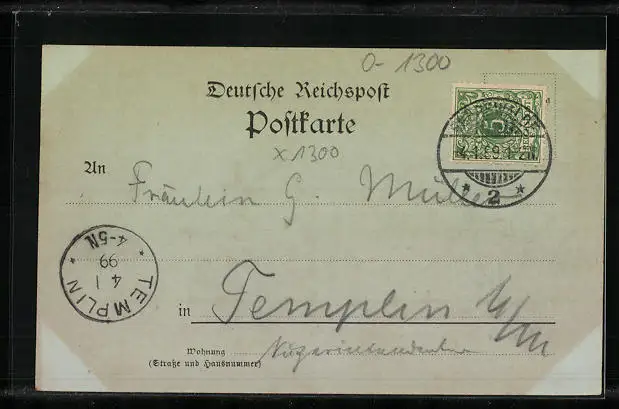 O- 1300
Deutsche Reichspost
Postkarte
x 1300
An
Fräulein G. Müller
TEMPLIN
4 1
99
4-5N
in Templin U/M
Wohnung
(Straße und Hausnummer)
2